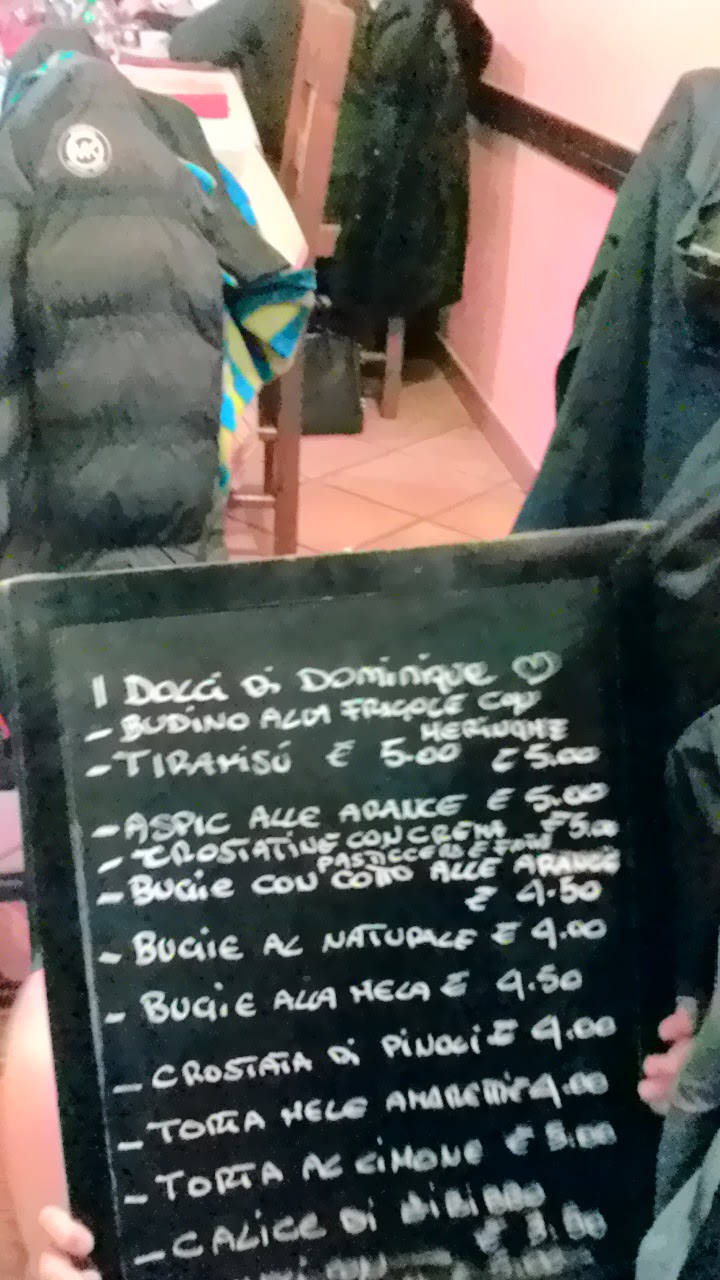 MK
I DOLCI DI DOMINIQUE
- BUDINO ALLA FRAGOLE CON
MERINGHE
- TIRAMISÚ € 5.00 € 5.00
- ASPIC ALLE ARANCE € 5.00
- CROSTATINE CON CREMA € 5.00
PASTICCERA E
- BUGIE CON COTTO ALLE ARANCE
€ 4.50
- BUGIE AL NATURALE € 4.00
- BUGIE ALLA MELA € 4.50
- CROSTATA DI PINOLI € 4.00
- TORTA MELE AMARETTI € 4.00
- TORTA AL LIMONE €
- CALICE DI